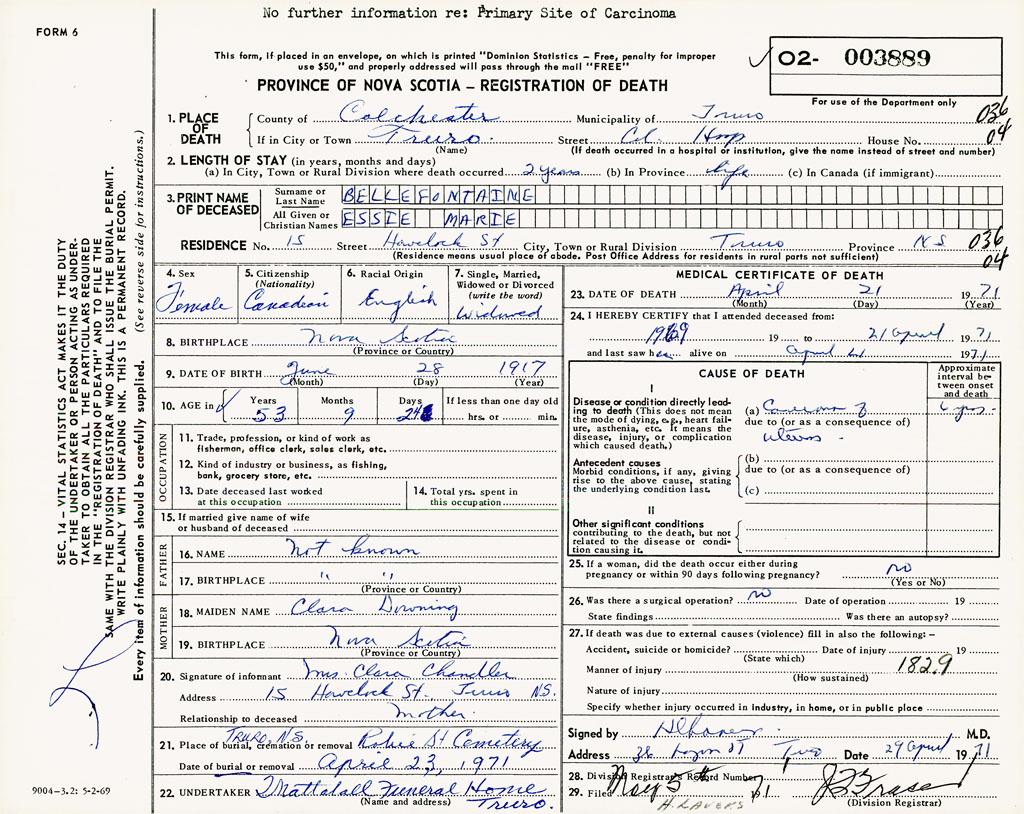 No further information re: Primary Site of Carcinoma
FORM 6
This form, if placed in an envelope, on which is printed "Dominion Statistics – Free, penalty for improper
use $50," and properly addressed will pass through the mail "FREE"
O2- 003889
PROVINCE OF NOVA SCOTIA – REGISTRATION OF DEATH
For use of the Department only
1. PLACE OF DEATH
County of Colchester Municipality of Truro 036
If in City or Town Truro. Street Col. Hosp House No. 04
(Name) (If death occurred in a hospital or institution, give the name instead of street and number)
2. LENGTH OF STAY (in years, months and days)
(a) In City, Town or Rural Division where death occurred 2 years (b) In Province life (c) In Canada (if immigrant)
3. PRINT NAME OF DECEASED
Surname or Last Name BELLEFONTAINE
All Given or Christian Names ESSIE MARIE
RESIDENCE No. 15 Street Havelock St City, Town or Rural Division Truro Province N S 036
(Residence means usual place of abode. Post Office Address for residents in rural parts not sufficient) 04
4. Sex
Female
5. Citizenship
(Nationality)
Canadian
6. Racial Origin
English
7. Single, Married,
Widowed or Divorced
(write the word)
Widowed
8. BIRTHPLACE Nova Scotia
(Province or Country)
9. DATE OF BIRTH June 28 1917
(Month) (Day) (Year)
10. AGE in Years Months Days If less than one day old
53 9 24 hrs. or min.
OCCUPATION
11. Trade, profession, or kind of work as
fisherman, office clerk, sales clerk, etc.
12. Kind of industry or business, as fishing,
bank, grocery store, etc.
13. Date deceased last worked
at this occupation
14. Total yrs. spent in
this occupation
15. If married give name of wife
or husband of deceased
FATHER
16. NAME Not known
17. BIRTHPLACE " "
(Province or Country)
MOTHER
18. MAIDEN NAME Clara Downing
19. BIRTHPLACE Nova Scotia
(Province or Country)
20. Signature of informant Mrs. Clara Chandler
Address 15 Havelock St. Truro N.S.
Relationship to deceased mother
TRURO, N.S.
21. Place of burial, cremation or removal Robie St Cemetery
Date of burial or removal April 23, 1971
22. UNDERTAKER Mattatall Funeral Home
(Name and address) Truro.
MEDICAL CERTIFICATE OF DEATH
23. DATE OF DEATH April 21 1971
(Month) (Day) (Year)
24. I HEREBY CERTIFY that I attended deceased from:
1969 19 to 21 April 1971
and last saw her alive on April 21 1971
CAUSE OF DEATH
Approximate
interval be-
tween onset
and death
I
Disease or condition directly lead-
ing to death (This does not mean
the mode of dying, e.g., heart fail-
ure, asthenia, etc. It means the
disease, injury, or complication
which caused death.)
(a) Carcinoma of
due to (or as a consequence of)
uterus -
yrs.
Antecedent causes
Morbid conditions, if any, giving
rise to the above cause, stating
the underlying condition last.
(b)
due to (or as a consequence of)
(c)
II
Other significant conditions
contributing to the death, but not
related to the disease or condi-
tion causing it.
25. If a woman, did the death occur either during
pregnancy or within 90 days following pregnancy? no
(Yes or No)
26. Was there a surgical operation? no Date of operation 19
State findings Was there an autopsy?
27. If death was due to external causes (violence) fill in also the following: –
Accident, suicide or homicide? Date of injury 19
(State which)
Manner of injury 1829
(How sustained)
Nature of injury
Specify whether injury occurred in industry, in home, or in public place
Signed by M.D.
Address St Truro Date 29 April 1971
28. Division Registrar's Record Number
29. Filed May 5th 71 J Fraser
H. LAVERS (Division Registrar)
SEC. 14 – VITAL STATISTICS ACT MAKES IT THE DUTY
OF THE UNDERTAKER OR PERSON ACTING AS UNDER-
TAKER TO OBTAIN ALL THE PARTICULARS REQUIRED
IN THE "REGISTRATION OF DEATH" AND TO FILE THE
SAME WITH THE DIVISION REGISTRAR WHO SHALL ISSUE THE BURIAL PERMIT.
WRITE PLAINLY WITH UNFADING INK. THIS IS A PERMANENT RECORD.
Every item of information should be carefully supplied. (See reverse side for instructions.)
9004-3.2: 5-2-69